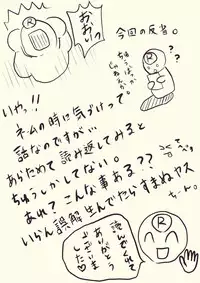 今回の反省。
おおいっ
R
??
いやっ!!
ネームの時に気づけって
話なのですがぃ
あらためて読み返してみると
ちゅうしかしてない。
あれ?こんな事ある??
いらん誤解生んでたらすまぬヤス
ちーん。
R
読んでくれて
ありがとう
ございま
した♡